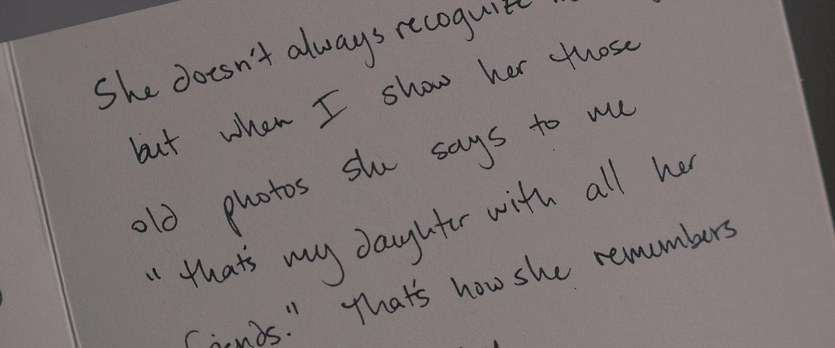 She doesn't always recognize
but when I show her those
old photos she says to me
"that's my daughter with all her
friends." That's how she remembers